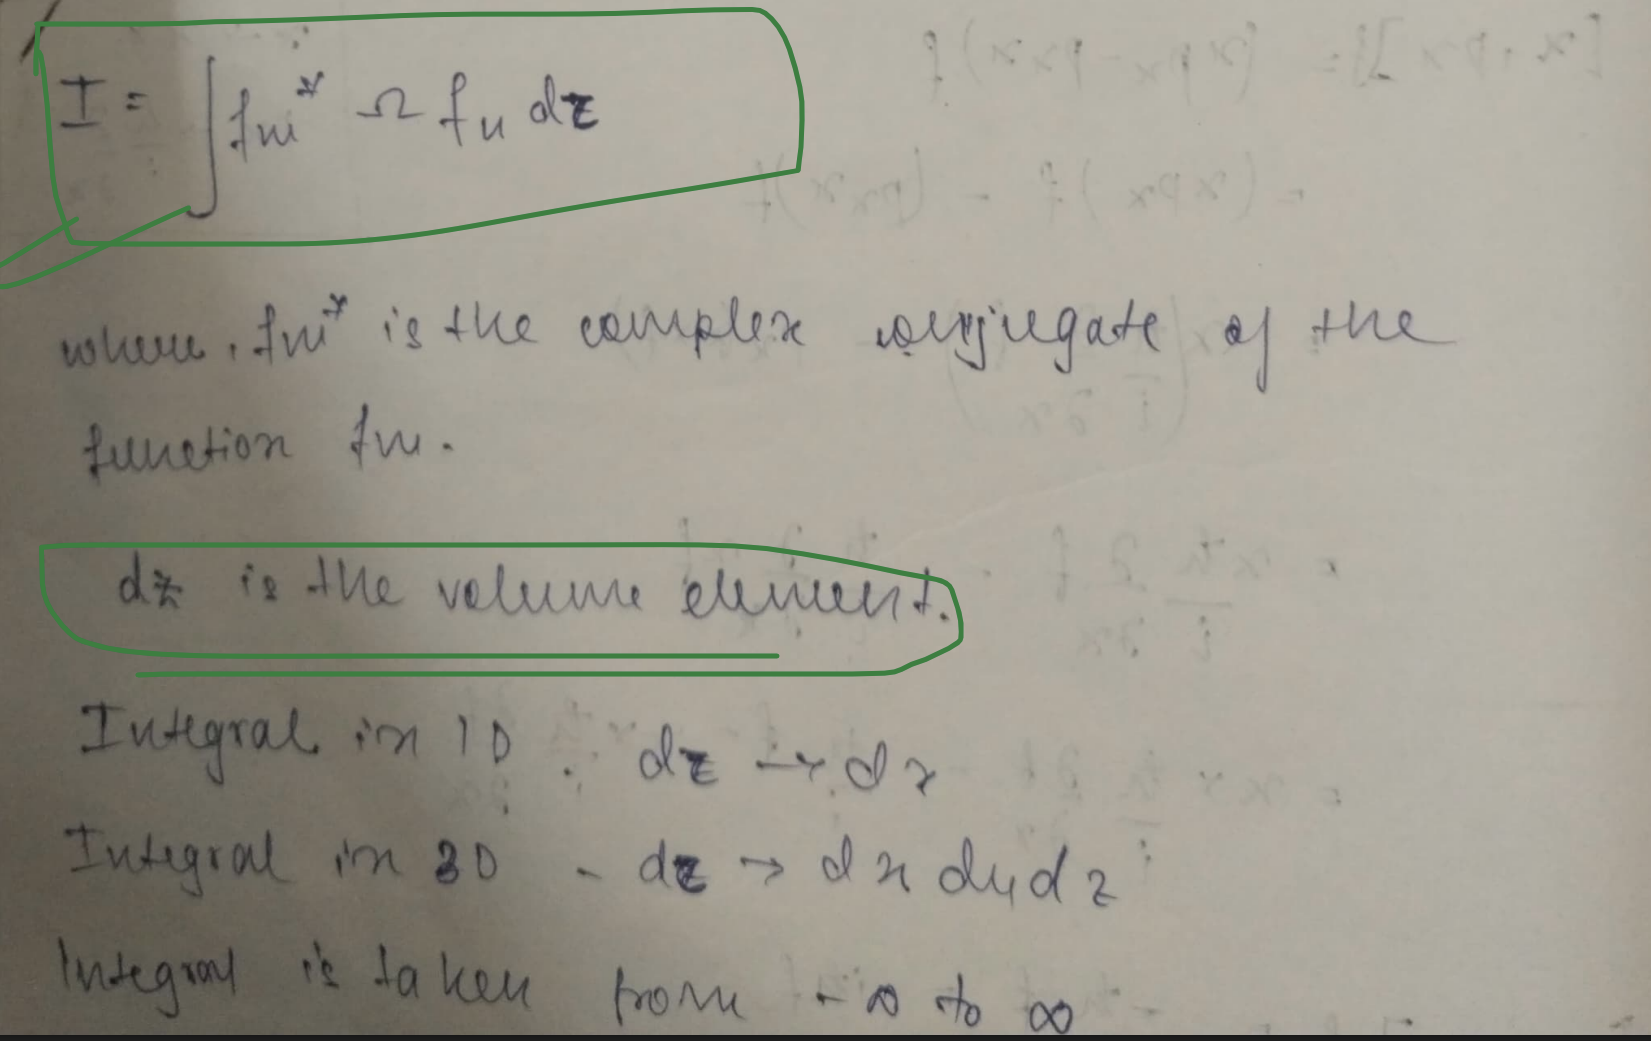 I = ∫ fm* Ω fn dz
where, fm* is the complex conjugate of the
function fm.
dz is the volume element.
Integral in 1D : dz → dx
Integral in 3D - dz → dx dy dz
Integral is taken from -∞ to ∞